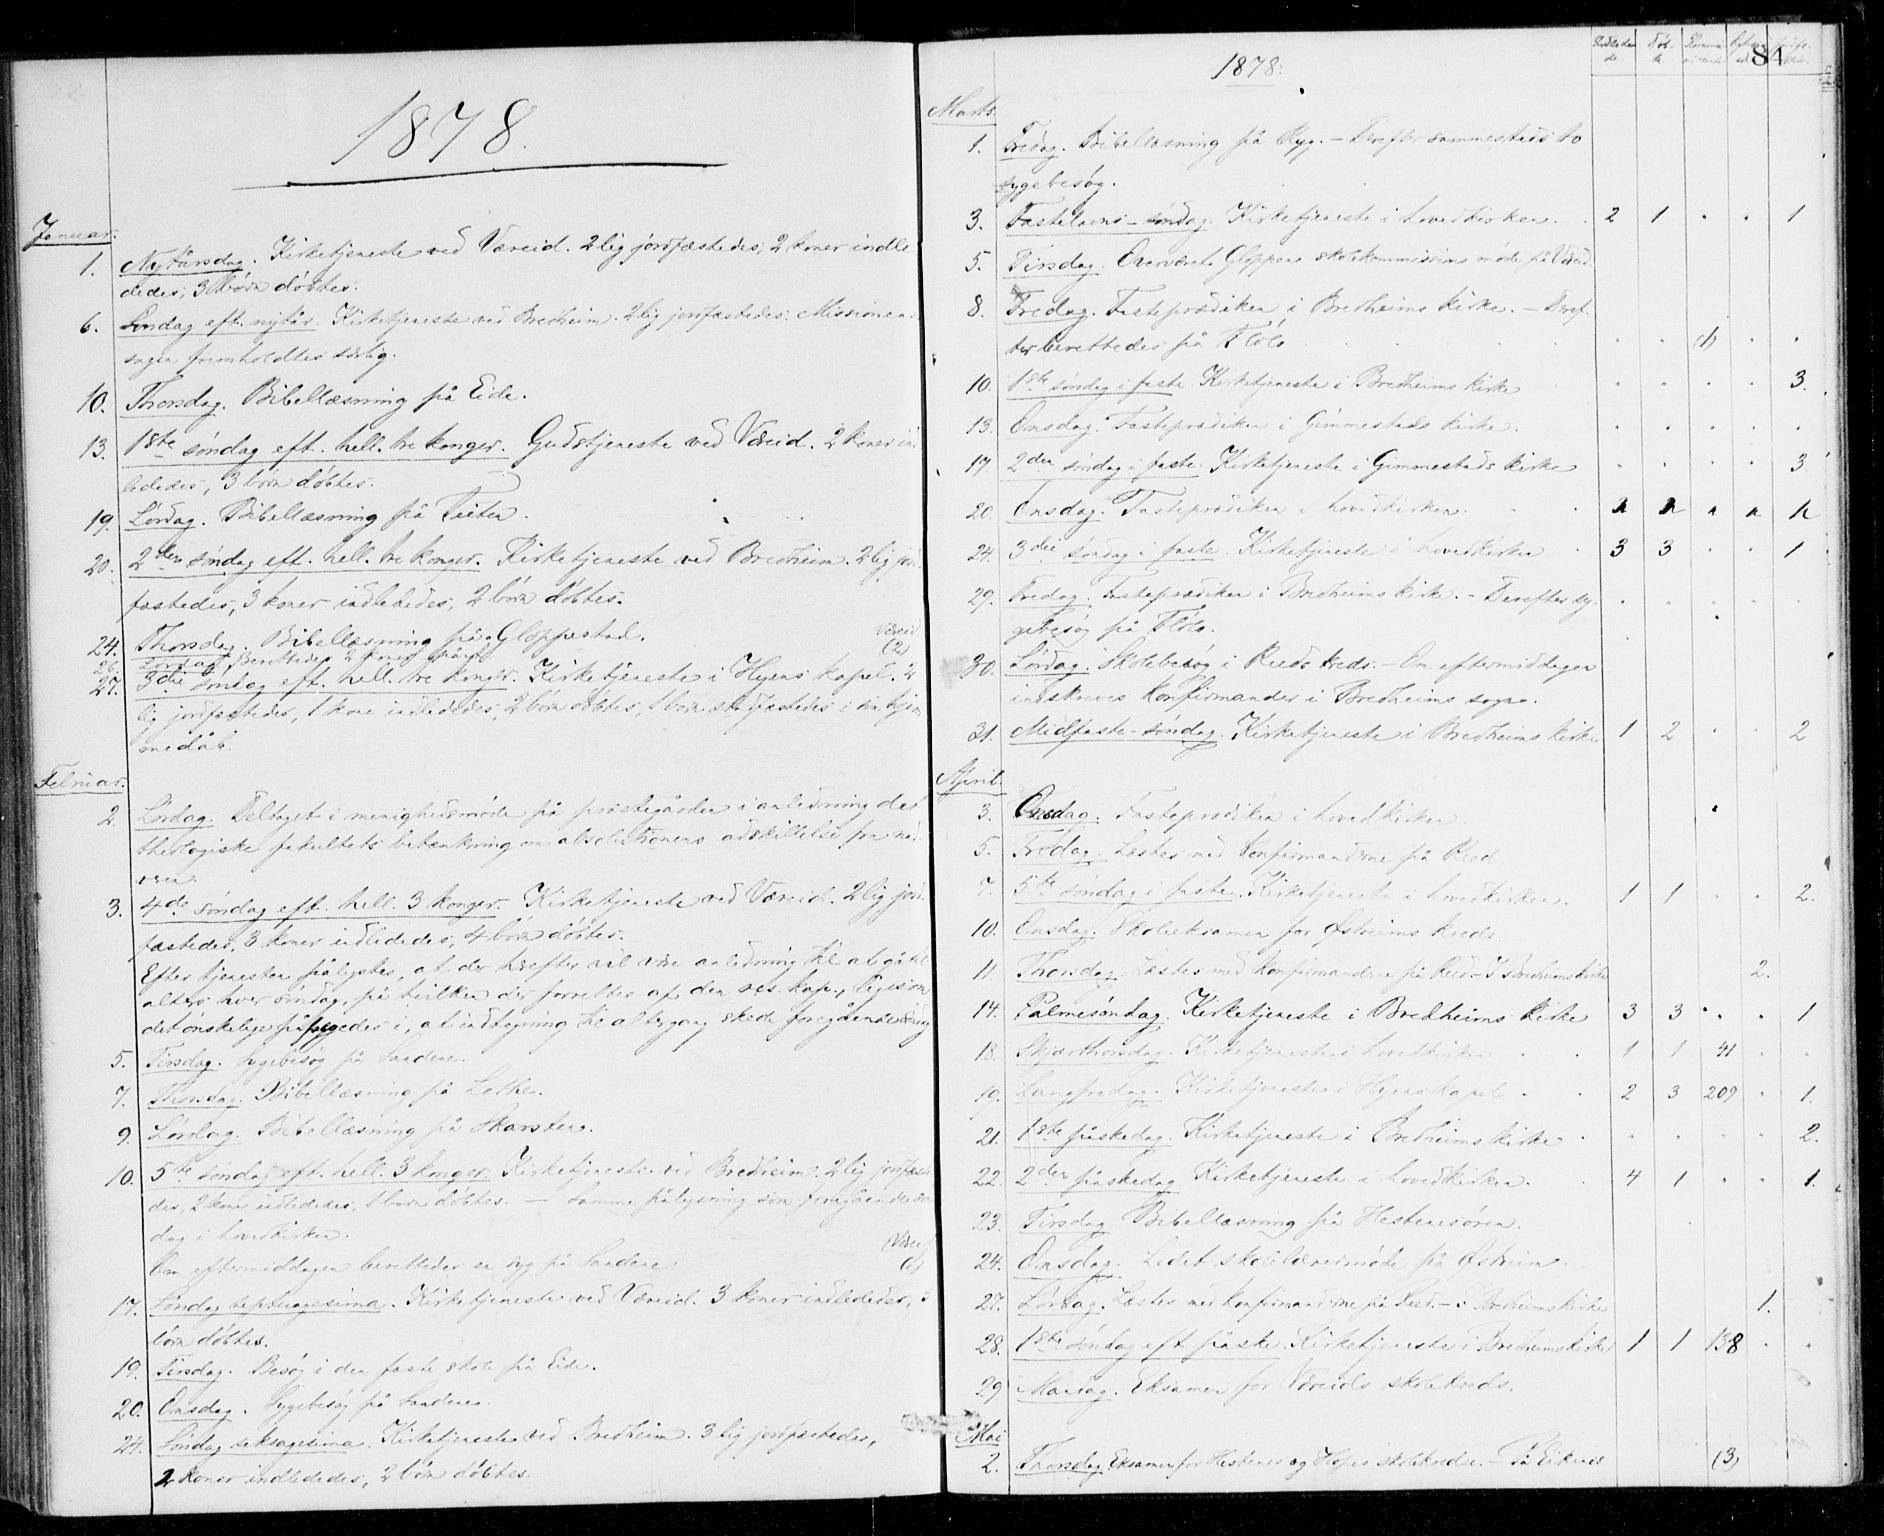 1878.
Januar.
1. Nytårsdag. Kirketjeneste ved Væreid. 2 lig jordfæstedes; 2 koner indle
dedes; 3 børn døbtes.
6. Søndag eft. nytår. Kirketjeneste ved Bredheim. 2 lig jordfæstedes; Missionen
sagen fremholdtes særlig.
10. Thorsdag. Bibellæsning på Eide.
13. 1ste søndag eft. hell. tre konger. Gudstjeneste ved Væreid. 2 koner ind
lededes, 3 børn døbtes.
19. Lørdag. Bibellæsning på
20. 2den søndag eft. hell. tre konger. Kirketjeneste ved Bredheim. 2 lig jord
fæstedes, 3 koner indlededes, 2 børn døbtes.
24. Thorsdag. Bibellæsning på Gloppestad. Væreid
26. Lørdag. Berettedes 2 koner på (2)
27. 3die søndag eft. hell. tre konger. Kirketjeneste i Hyens kapel. 2
lig jordfæstedes, 1 kone indlededes, 2 børn døbtes, 1 barn stadfæstedes i sin hjem
medåb.
Februar.
2. Lørdag. Deltaget i menighedsmøde på præstegården i anledning det
theologiske fakultets betænkning om absolutionens adskillelse fra nad
veren.
3. 4de søndag eft. hell. 3 konger. Kirketjeneste ved Væreid. 2 lig jord
fæstedes, 3 koner indlededes, 4 børn døbtes.
Efter tjenesten pålystes, at der herefter vil være anledning til at gå til
alters hver søndag, på hvilken der forrettes af den res. kap., ligesom
det ønskelige i, at indtegning til altergang skede foregående
5. Tirsdag. Sygebesøg på Sandene.
7. Thorsdag. Bibellæsning på Lothe.
9. Lørdag. Bibellæsning på Skarsten.
10. 5te søndag eft. hell. 3 konger. Kirketjeneste ved Bredheim. 2 lig jordfæste
des, 2 koner indlededes, 1 barn døbtes. — Samme pålysning som foregående søn
dag i hovedkirken.
Om eftermiddagen berettedes en syg på Sandene (1)
17. Søndag septuagesima. Kirketjeneste ved Væreid. 3 koner indlededes, 3
børn døbtes.
19. Tirsdag. Besøg i den faste skole på Eide.
20. Onsdag. Sygebesøg på Sandene.
24. Søndag seksagesima. Kirketjeneste ved Bredheim. 3 lig jordfæstedes,
2 koner indlededes, 2 børn døbtes.
1878. 84
Marts.
1. Fredag. Bibellæsning på Ryg. — Derefter sammesteds to
sygebesøg.
3. Fastelavns-søndag. Kirketjeneste i hovedkirken. 2 1 . . 1
5. Tirsdag. Overværet Gloppens skolekommissions møde på Væreid
8. Fredag. Fasteprædiken i Bredheims kirke. — Deref-
ter berettedes på Fløtø . . (1) . .
10. 1ste søndag i faste. Kirketjeneste i Bredheims kirke . . . . 3.
13. Onsdag. Fasteprædiken i Gimmestads kirke. . . . . .
17. 2den søndag i faste. Kirketjeneste i Gimmestads kirke . . . . 3.
20. Onsdag. Fasteprædiken i hovedkirken.
24. 3die søndag i faste. Kirketjeneste i hovedkirken 3 3 . . 1
29. Fredag. Fasteprædiken i Bredheims kirke. — Derefter sy-
gebesøg på Fløtø.
30. Lørdag. Skolebesøg i Reeds kreds. — Om eftermiddagen
indskreves konfirmander i Bredheims sogn.
31. Midfaste-søndag. Kirketjeneste i Bredheims kirke 1 2 . . 2
April.
3. Onsdag. Fasteprædiken i hovedkirken.
5. Fredag. Læstes med konfirmanderne på Reed
7. 5te søndag i faste. Kirketjeneste i hovedkirken. 1 1 . . 2.
10. Onsdag. Skoleeksamen for Østheims kreds.
11. Thorsdag. Læstes med konfirmanderne på Reed. — I Bredheims kirke 2.
14. Palmesøndag. Kirketjeneste i Bredheims kirke 3 3 . . 1
18. Skjærthorsdag. Kirketjeneste i hovedkirken 1 1 41 . .
19. Langfredag. Kirketjeneste i Hyens kapel 2 3 209 . 1.
21. 1ste påskedag. Kirketjeneste i Bredheims kirke . . . . 2.
22. 2den påskedag. Kirketjeneste i hovedkirken. 4 1 . . 1.
23. Tirsdag. Bibellæsning på Hestenesøren.
24. Onsdag. Ledet skolelærermøde på Østheim.
27. Lørdag. Læstes med konfirmanderne på Reed. — I Bredheims kirke 1.
28. 1ste søndag eft. påske. Kirketjeneste i Bredheims kirke 1 1 138 . .
29. Mandag. Eksamen for Væreids skolekreds.
Mai
2. Thorsdag. Eksamen for Hestenes og Hopes skolekredse. — På Eikenes (3)